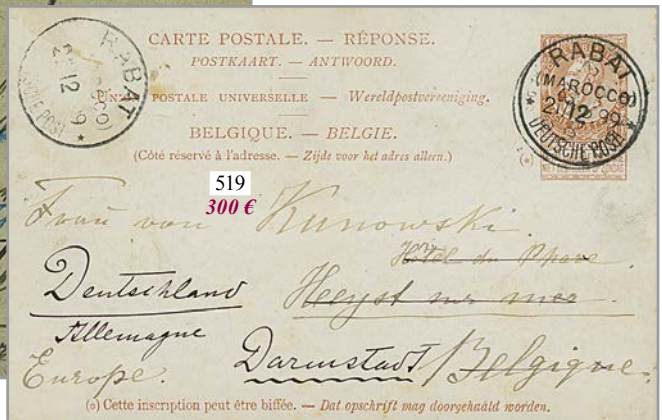 CARTE POSTALE. — RÉPONSE.
POSTKAART. — ANTWOORD.
POSTALE UNIVERSELLE — Wereldpostvereeniging.
BELGIQUE. — BELGIE.
(Côté réservé à l'adresse. — Zijde voor het adres alleen.) (*)
RABAT
12
RABAT
(MAROCCO)
12 99
DEUTSCHE POST
519
300 €
Frau von Kunowski.
Hôtel du Phare
Deutschland Heyst sur mer.
Allemagne
Darmstadt / Belgique.
Europe.
(*) Cette inscription peut être biffée. — Dat opschrift mag doorgehaald worden.